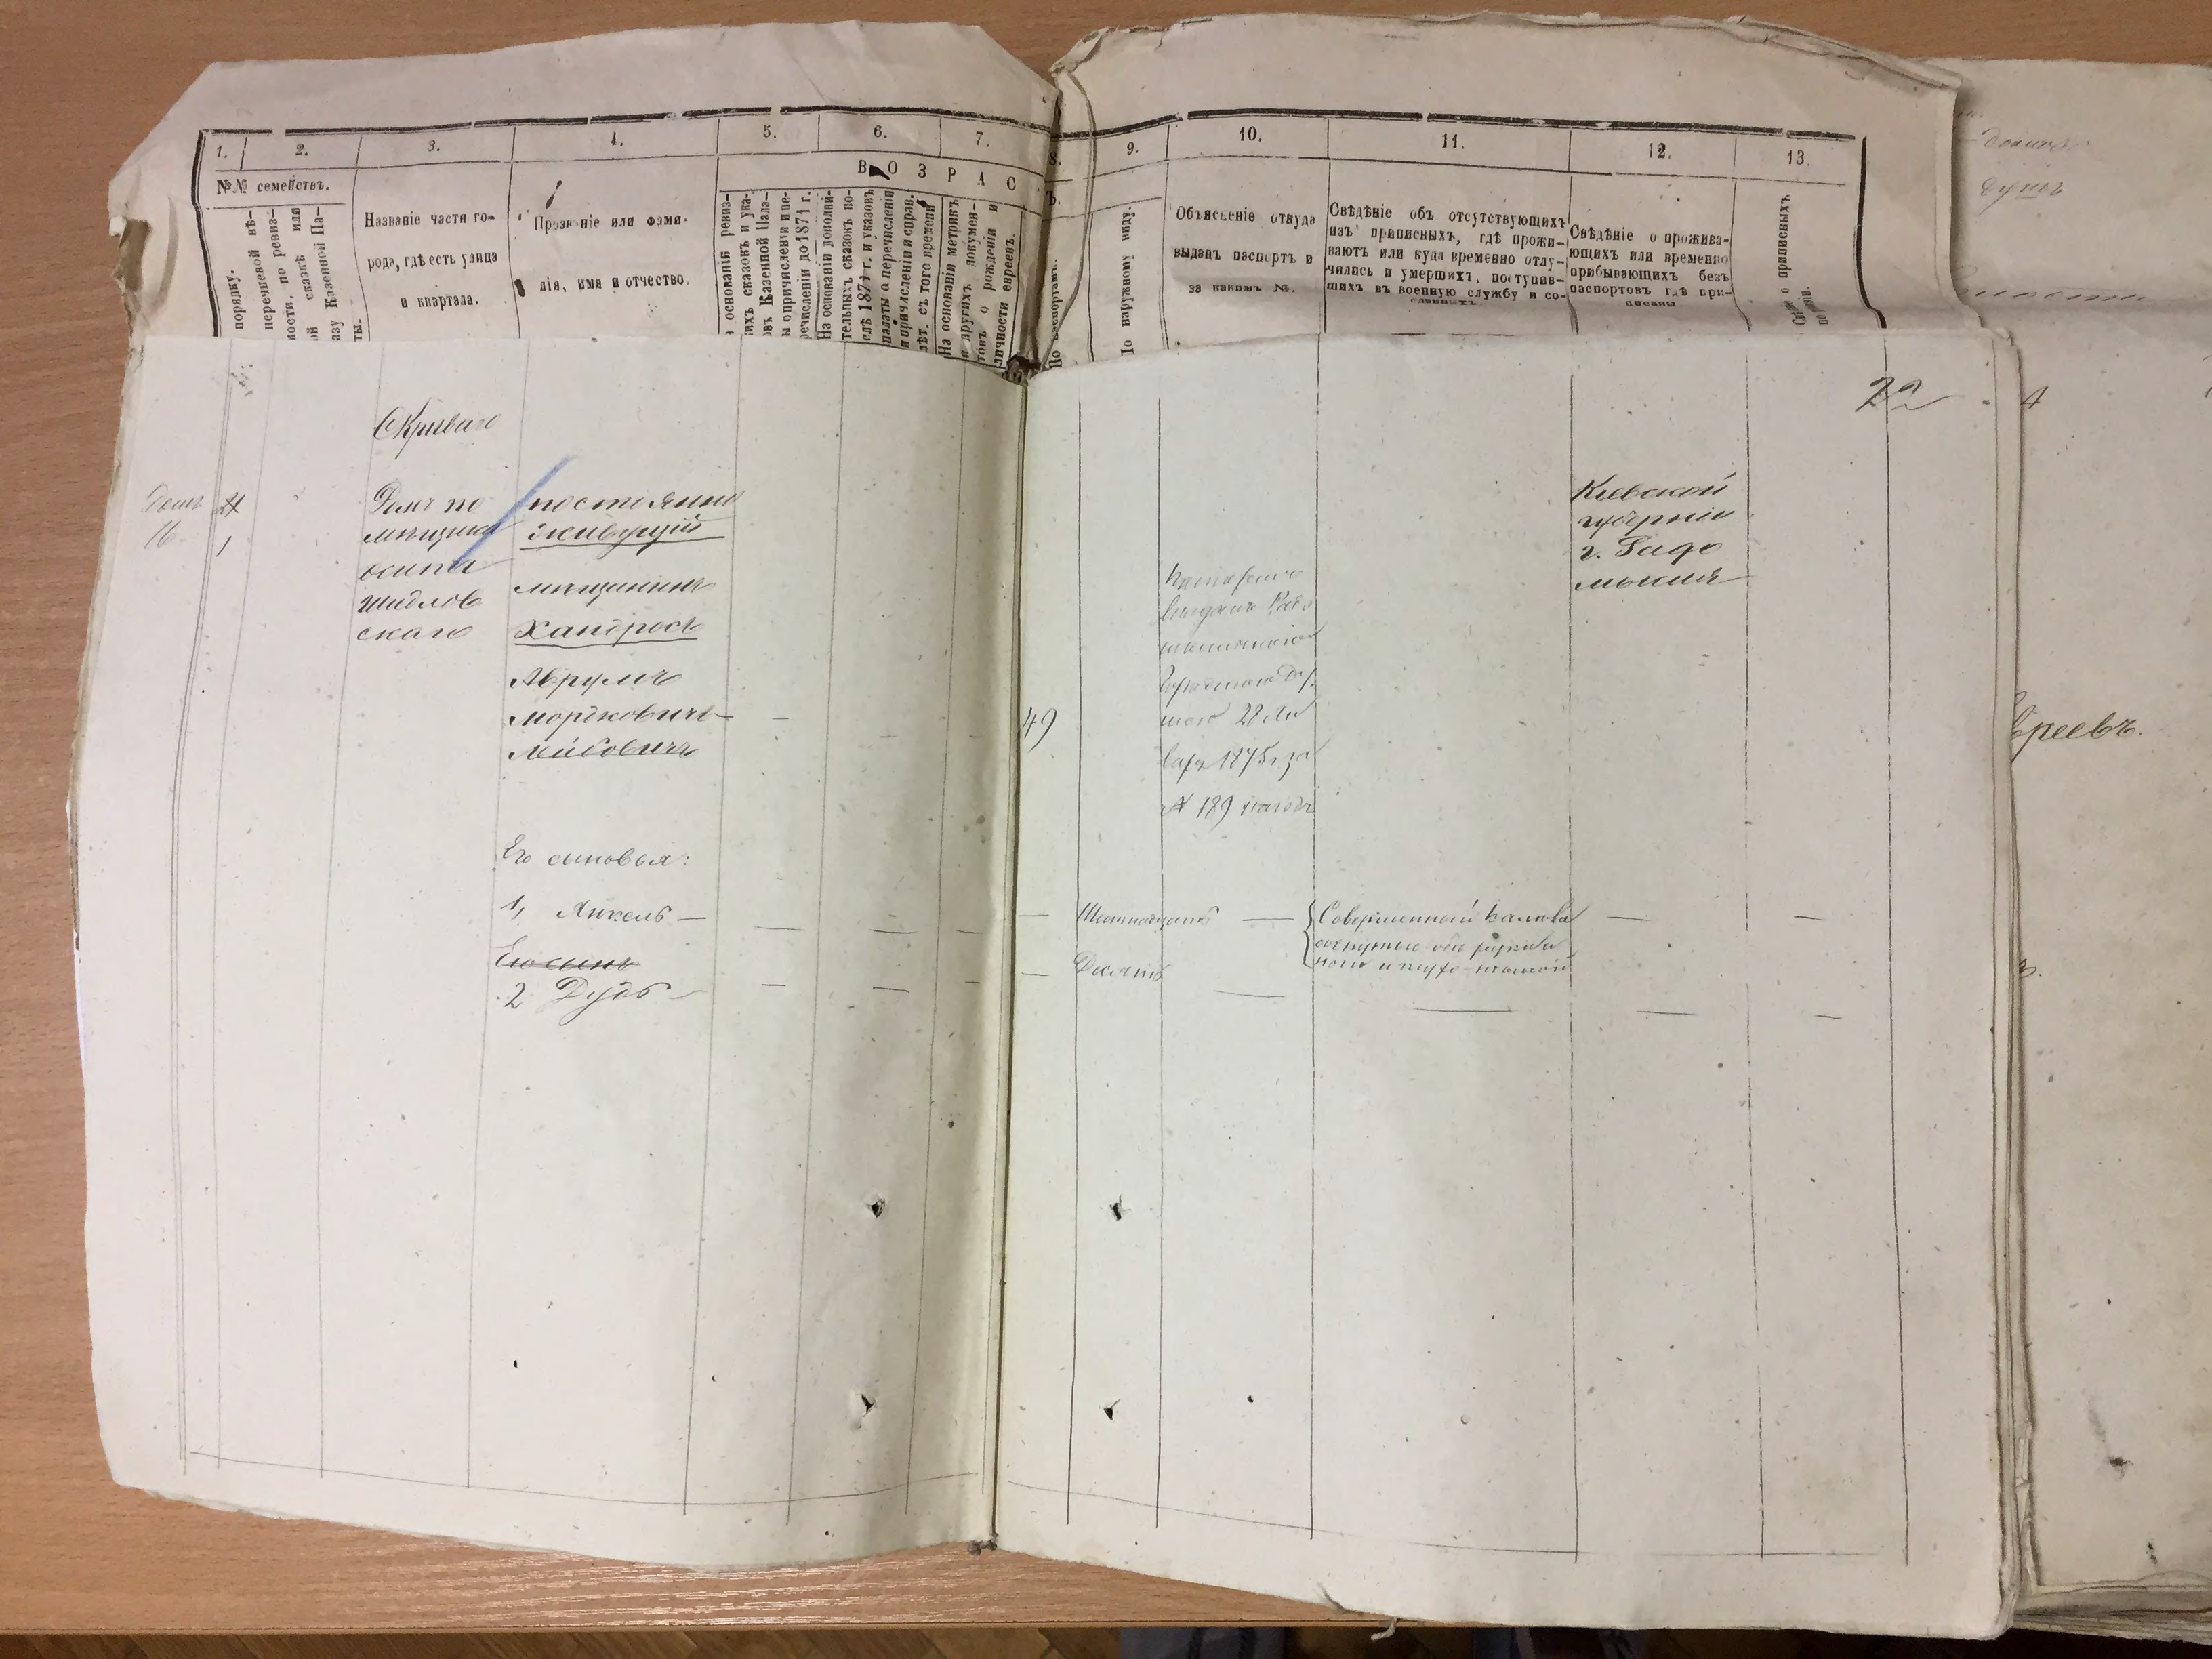 1.
2.
3.
4.
5.
6.
7.
8.
9.
10.
11.
12.
13.
№№ семействъ.
ВОЗРАС
Ъ.
порядку.
перечневой вѣ-
мости. по ревиз-
ой сказкѣ или
азу Казенной Па-
ты.
Названіе части го-
рода, гдѣ есть улица
и квартала.
Прозваніе или фами-
лія, имя и отчество.
основаніи ревиз-
ихъ сказокъ и ука-
овъ Казенной Пала-
ы о причисленіи и пе-
речисленіи до 1871 г.
На основаніи дополни-
тельныхъ сказокъ по-
слѣ 1871 г. и указовъ
палаты о перечисленіи
и причисленіи и справ.
лѣт. съ того времени
На основаніи метрикъ
и другихъ докумен-
товъ о рожденіи и
личности евреевъ.
По паспортамъ.
По наружному виду.
Объясненіе откуда
выданъ паспортъ и
за какимъ №.
Свѣдѣніе объ отсутствующихъ
изъ приписныхъ, гдѣ прожи-
ваютъ или куда временно отлу-
чились и умершихъ, поступив-
шихъ въ военную службу и со-
сланныхъ.
Свѣдѣніе о прожива-
ющихъ или временно
прибывающихъ безъ
паспортовъ гдѣ при-
писаны
о приписныхъ
22
4
Скриваго
Домъ
16
1
Домъ по
мѣщина
осипа
Шидлов
скаго
постоянно
живущій
мѣщанинъ
Хандросъ
Абрумъ
Мордковичъ —
Лейбовичъ
49
выданъ Радо
28 Ян
варя 1875 г за
№ 189 на годъ
Кіевской
губерніи
г. Радо
мысля
Его сыновья:
1, Янкель —
— Шестнадцать — Совершенный калѣка — —
Его сынъ
2 Дудь —
— Десять
душъ
вреевъ.